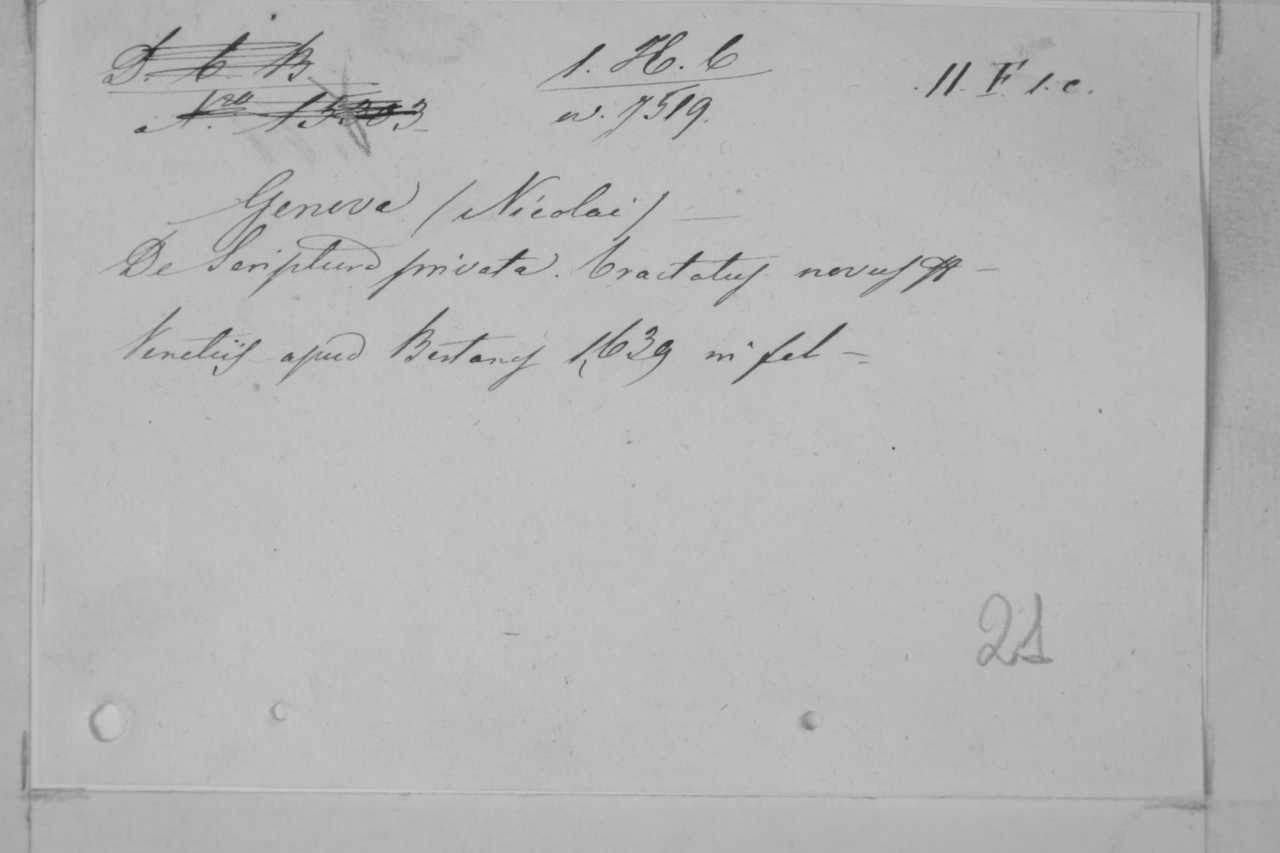 D. C B 1. H. C 11. F 1. c.
Nro 15303 N. 7519.
Genova (Nicolai) —
De Scriptura privata. Tractatus novus —
Venetiis apud Bertanos 1639 in fol =
21